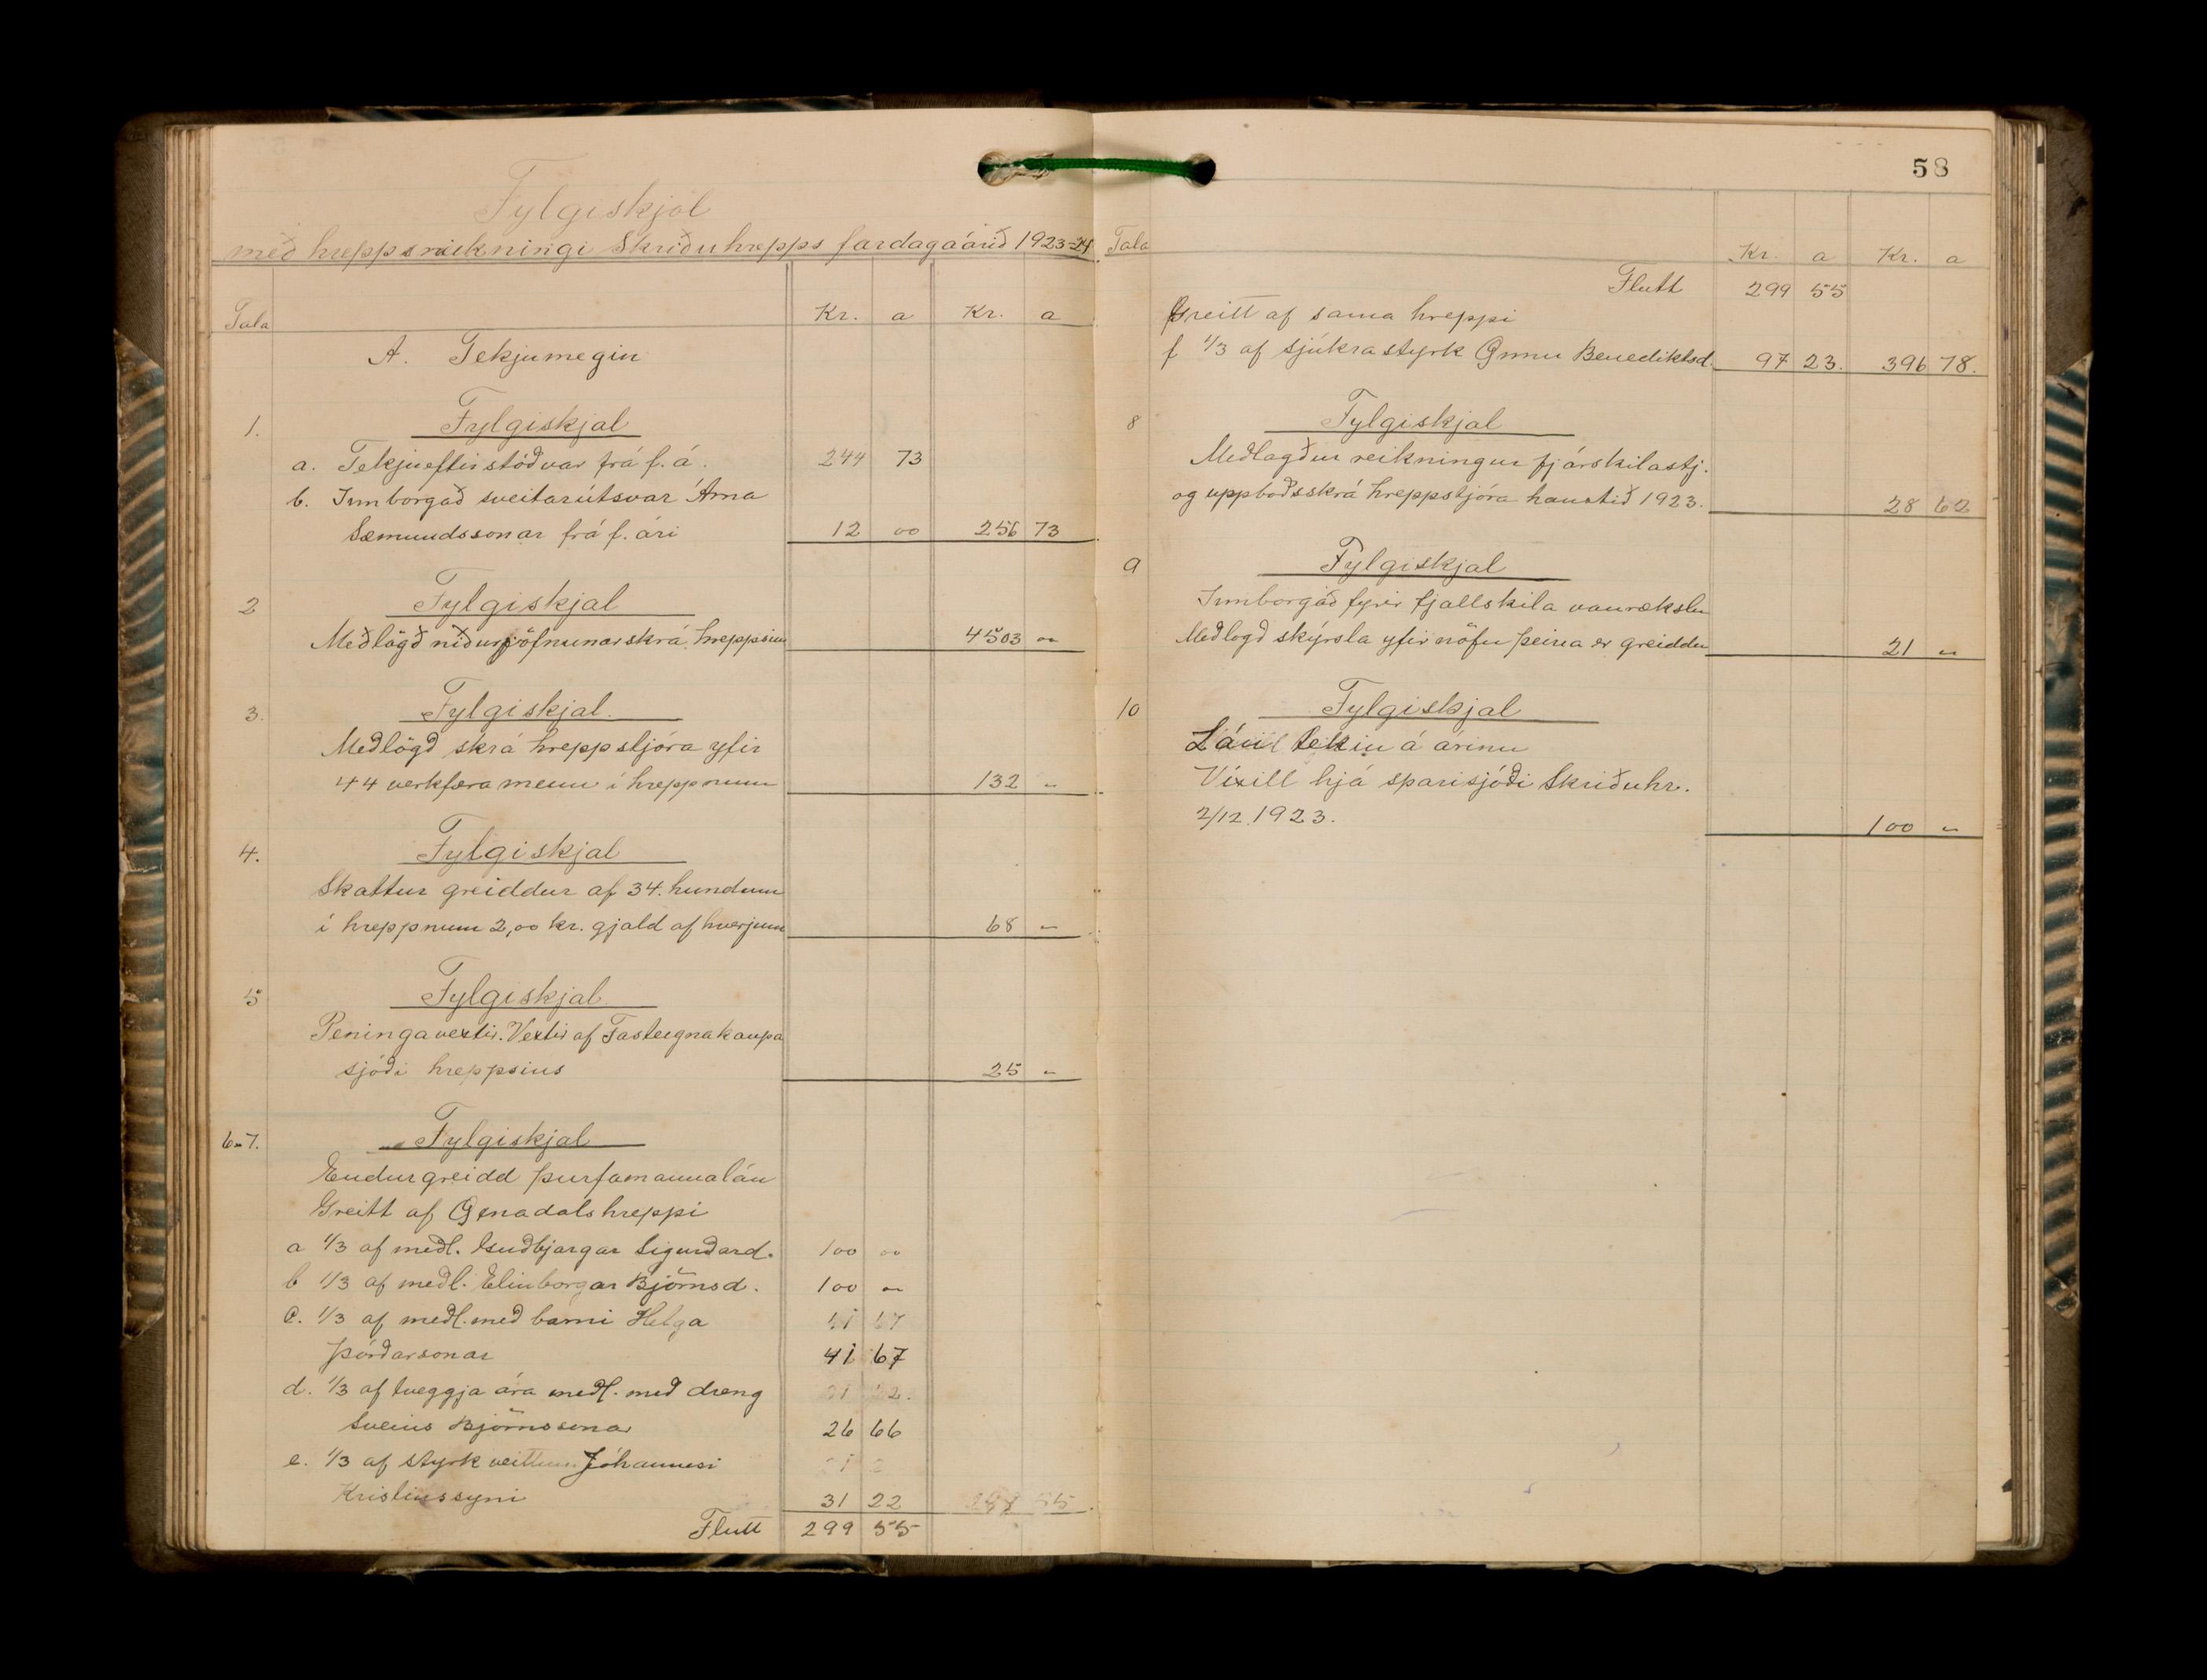 Fylgiskjöl
með hreppsreikningi Skriðuhrepps fardagaárið 1923-24
Tala Kr. a Kr. a
A. Tekjumegin
1. Fylgiskjal
a. Tekjueftirstöðvar frá f. á. 244 73
b. Innborgað sveitarútsvar Árna
Sæmundssonar frá f. ári 12 00 256 73
2 Fylgiskjal
Meðlögð niðurjöfnunarskrá hreppsins 4503 "
3. Fylgiskjal
Meðlögð skrá hreppstjóra yfir
44 verkfæra menn í hreppnum 132 "
4. Fylgiskjal
Skattur greiddur af 34. hundum
í hreppnum 2,00 kr. gjald af hverjum 68 "
5 Fylgiskjal
Peningavextir. Vextir af Fasteignakaupa
sjóði hreppsins 25 "
6-7. Fylgiskjal
Endurgreidd þurfamannalán
Greitt af hreppi
a 1/3 af meðl. Guðbjargar Sigurðard. 100 00
b 1/3 af meðl. Elinborgar Björnsd. 100 "
c. 1/3 af meðl. með barni Helga 41 67
Þórðarsonar 41 67
d. 1/3 af tveggja ára meðl. með dreng
Sveins Björnssonar 26 66
e. 1/3 af styrk veittum Jóhannesi
Kristinssyni 31 22
Flutt 299 55
58
Tala Kr. a Kr. a
Flutt 299 55
Greitt af sama hreppi
f 1/3 af sjúkrastyrk Önnu Benediktsd. 97 23. 396 78.
8 Fylgiskjal
Meðlagður reikningur fjárskilastj.
og uppboðsskrá hreppstjóra haustið 1923. 28 62
9 Fylgiskjal
Innborgað fyrir fjallskila vanrækslu
Meðlogð skýrsla yfir nöfn þeirra er greiddu 21 "
10 Fylgiskjal
Lán tekin á árinu
Víxill hjá sparisjóði Skriðuhr.
2/12 1923. 100 "